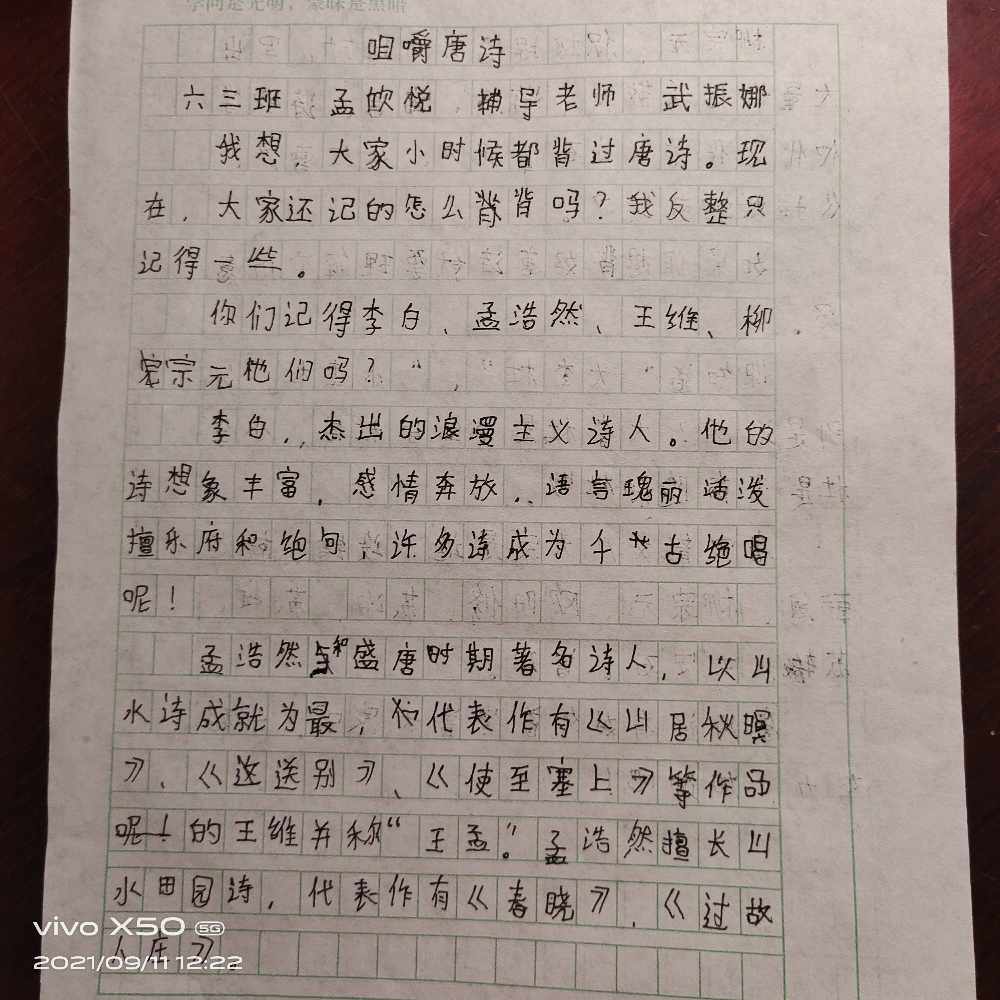 学问是光明，蒙昧是黑暗
咀嚼唐诗
六三班 孟欣悦 辅导老师 武振娜
我想，大家小时候都背过唐诗。现
在，大家还记的怎么背吗？我反整只
记得一些。
你们记得李白、孟浩然、王维、柳
宗元他们吗？
李白，杰出的浪漫主义诗人。他的
诗想象丰富，感情奔放，语言瑰丽活泼
擅乐府和绝句，许多诗成为千古绝唱
呢！
孟浩然和盛唐时期著名诗人，以山
水诗成就为最，代表作有《山居秋暝
》、《送别》、《使至塞上》等作品
的王维并称“王孟”。孟浩然擅长山
水田园诗，代表作有《春晓》，《过故
人庄》。
vivo X50 5G
2021/09/11 12:22